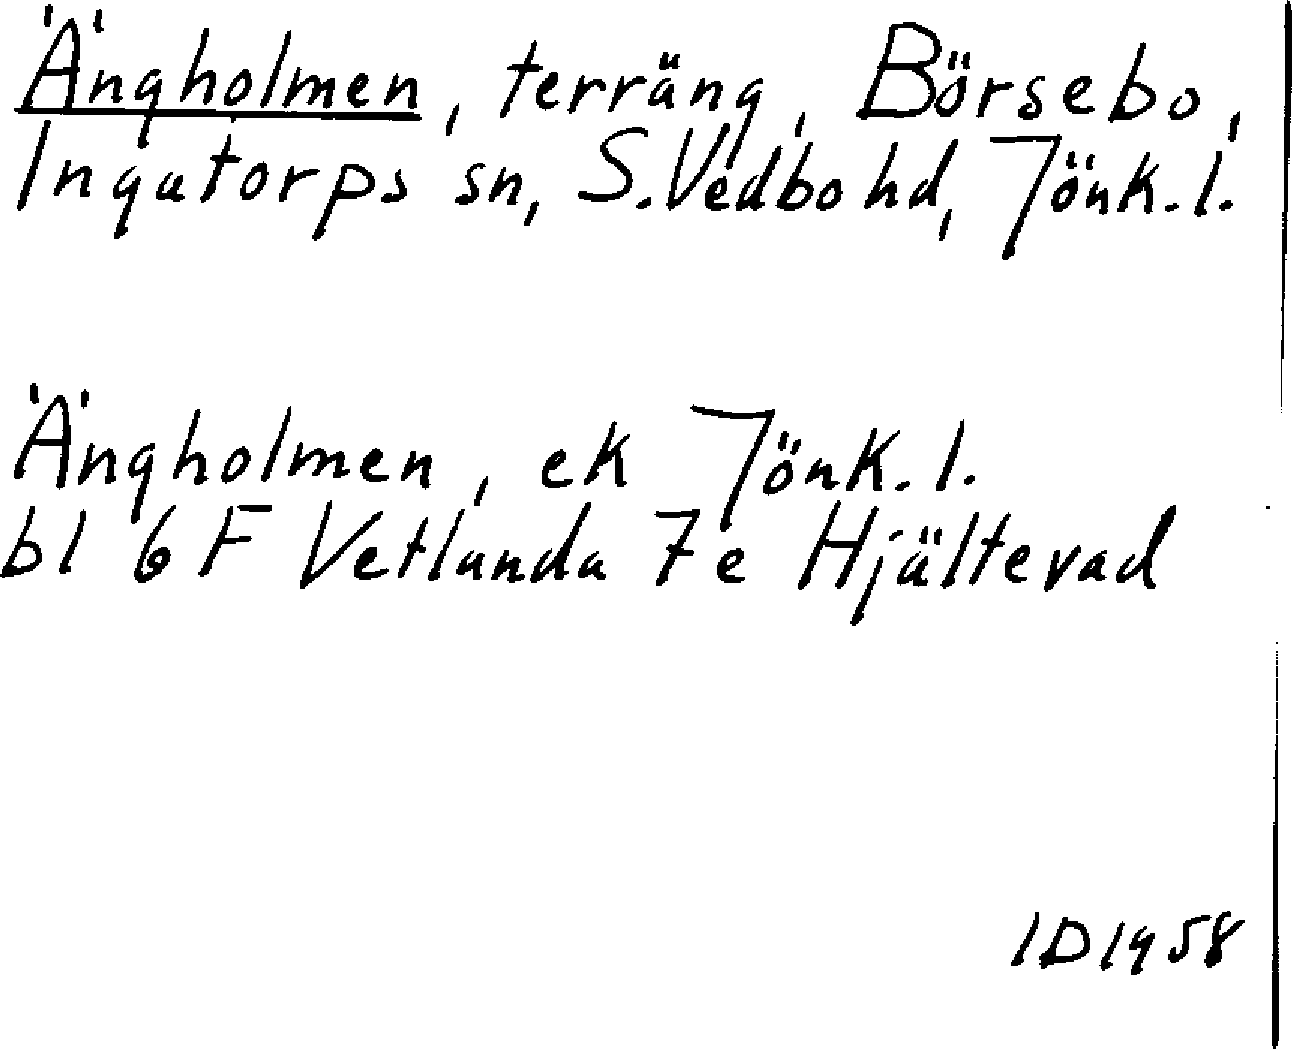 Ängholmen, terräng, Börsebo,
Ingatorps sn, S.Vedbo hd, Jönk.l.
Ängholmen, ek Jönk.l.
bl 6 F Vetlanda 7e Hjältevad
ID 1958